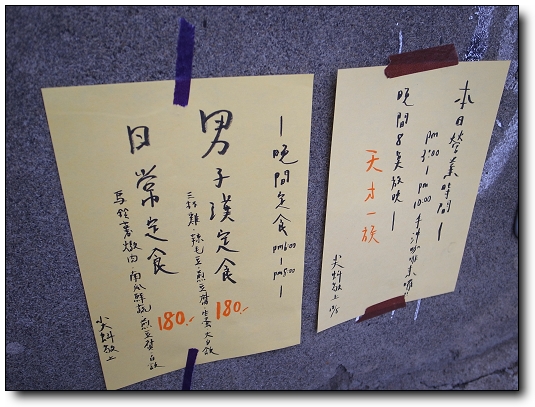 本日營業時間
pm 3:00 — pm 10:00
晚間8點放映
天才一族
尖蚪敬上
—晚間定食—
pm6:00 — pm8:00
男子漢定食
三杯雞、辣毛豆、煎豆腐、生蛋、大白飯
180.-
日常定食
馬鈴薯燉肉 南瓜鮮蔬 煎豆腐 白飯
180.-
尖蚪敬上